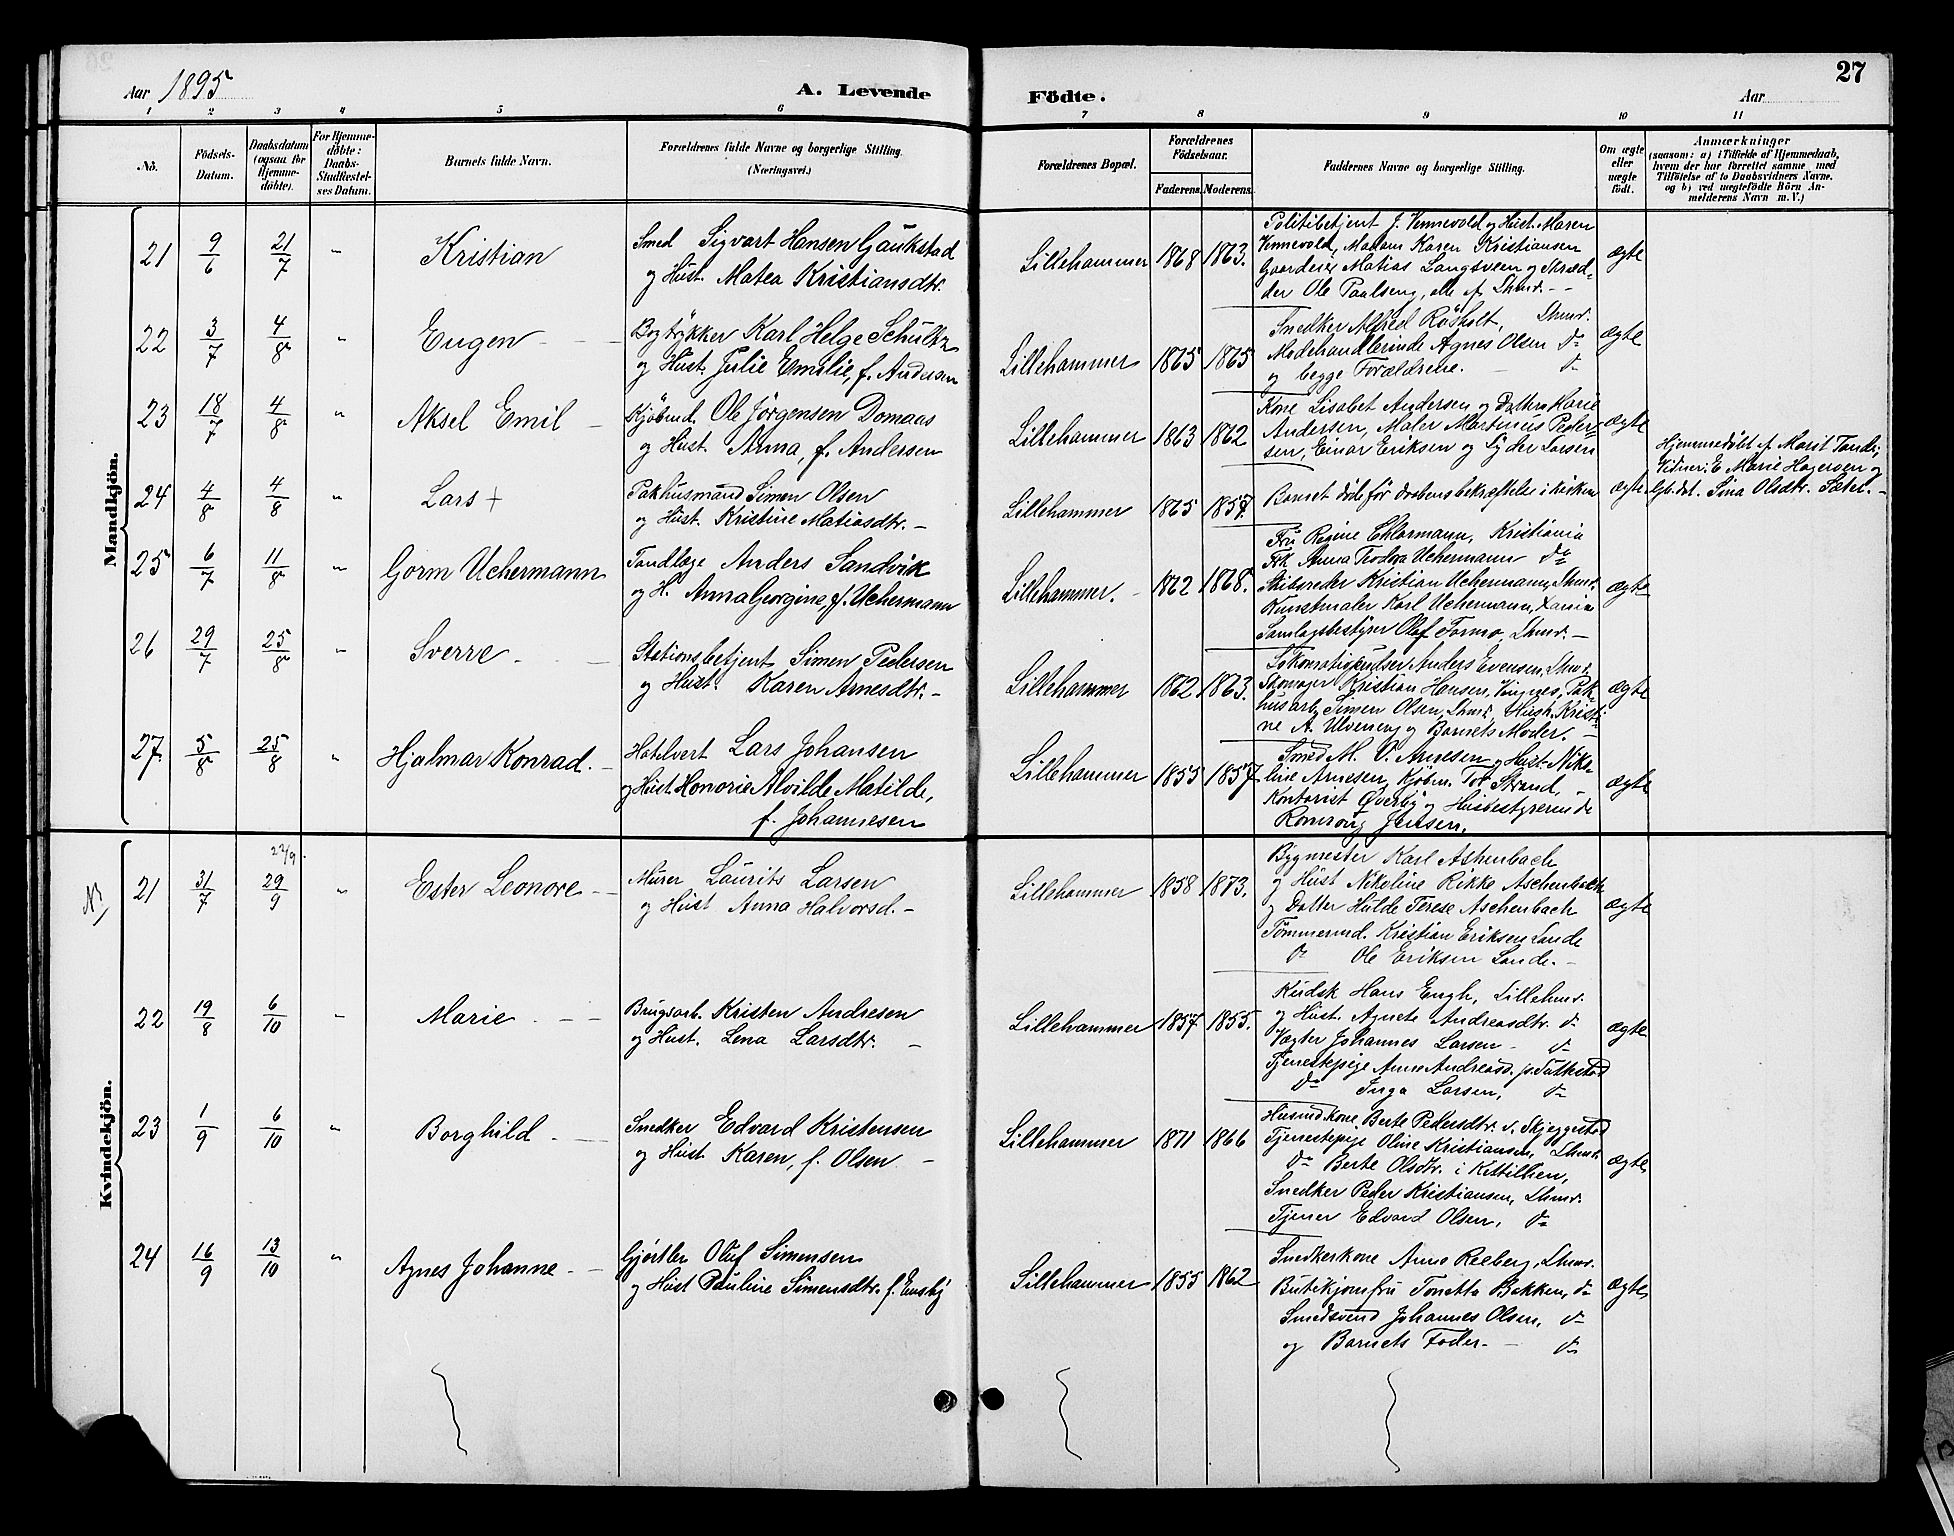 Aar 1895
A. Levende
Födte.
Aar
27
1 2 3 4 5 6 7 8 9 10 11
No.
Födsels-
Datum.
Daabsdatum
(ogsaa for
Hjemme-
döbte).
For Hjemme-
döbte:
Daabs-
Stadfæstel-
ses Datum.
Barnets fulde Navn.
Forældrenes fulde Navne og borgerlige Stilling.
(Næringsvei.)
Forældrenes Bopæl.
Forældrenes
Födselsaar.
Faderens. Moderens.
Faddernes Navne og borgerlige Stilling.
Om ægte
eller
uægte
födt.
Anmærkninger
(saasom: a) i Tilfælde af Hjemmedaab,
hvem der har forrettet samme med
Tilföielse af to Daabsvidners Navne.
og b) ved uægtefödte Börn An-
melderens Navn m. V.)
Mandkjön.
21 9/6 21/7 " Kristian
Smed Sigvart Hansen Gaukstad
og Hust. Matea Kristiansdtr.
Lillehammer 1868 1863.
Politibetjent J. Vennevold og Hust. Maren
Vennevold, Madam Karen Kristiansen
Gaardeier Matias Langsveen og Skræd-
der Ole Paulseng, alle af Lhmr. - -
ægte
22 3/7 4/8 " Eugen
Bogtrykker Karl Helge Schultz
og Hust. Julie Emilie, f. Andersen
Lillehammer 1865 1865
Snedker Alfred Rösholt, Lhmr.
Modehandlerinde Agnes Olsen do
og begge Forældrene. do
ægte
23 18/7 4/8 " Aksel Emil
Kjöbmd. Ole Jörgensen Domaas
og Hust. Anna, f. Andersen
Lillehammer 1863 1862
Kone Lisabet Andersen og Datter Marie
Andersen, Maler Martinius Peder-
sen, Einar Eriksen og Syder Larsen
ægte
24 4/8 4/8 " Lars +
Pakhusmand Simen Olsen
og Hust. Kristine Matiasdtr. -
Lillehammer 1865 1857.
Barnet döde för daabens bekræftelse i kirken
ægte
Hjemmedöbt af Marit Tande;
Vidner: E. Marie Hagesven og
Gbr.dat. Sina Olsdtr. Sætel. -
25 6/7 11/8 " Gorm Uchermann
Tandlæge Anders Sandvik
og H. Anna Georgine, f. Uchermann
Lillehammer. 1862 1868.
Fru Regine Chlormann, Kristiania
Frk. Anna Teodora Uchermann do
Skibsreder Kristian Uchermann, Lhmr.
Kunstmaler Karl Uchermann, Xania
Samlagsbestyrer Olaf Formo, Lhmr. -
ægte
26 29/7 25/8 " Sverre
Stationsbetjent Simen Pedersen
og Hust. Karen Arnesdtr. -
Lillehammer 1862 1863.
Lokomotivpudser Anders Evensen, Lhmr.
Skomager Kristian Hansen, Vingnes, Pak-
husarb. Simen Olsen, Lhmr., Hush. Kristi-
ne A. Ulveneng og Barnets Moder. -
ægte
27. 5/8 25/8 " Hjalmar Konrad.
Hotelvert Lars Johansen
og Hust. Honorie Alvilde Matilde,
f. Johannesen
Lillehammer 1855 1857
Smed M. O. Arnesen og Hust. Niko-
line Arnesen, Kjöbm. Tot Strand,
Kontorist Øverby og Husbestyrerinde
Jensen.
ægte
Kvindekjön.
21 31/7 22/9. 29/9 " Ester Leonore
Murer Laurits Larsen
og Hust Anna Halvorsd. -
Lillehammer 1858 1873.
Bygmester Karl Aschenbach
og Hust Nikoline Rikke Aschenbach
og Datter Hulde Terese Aschenbach
Tömmermd. Kristian Eriksen Lande
do Ole Eriksen Lande. -
ægte
22 19/8 6/10 " Marie
Brugsarb. Kristen Andresen
og Hust. Lena Larsdtr. -
Lillehammer 1857. 1855.
Kudsk Hans Engh, Lillehmr.
og Hust. Agnete Andreasdtr. do
Vægter Johannes Larsen - do
Tjenestepige Anna Andreasd. p. Suttestad
do Inga Larsen, do
ægte
23 1/9 6/10 " Borghild
Snedker Edvard Kristensen
og Hust. Karen, f. Olsen -
Lillehammer 1871 1866
Husmdkone Berte Pedersdtr. v. Skjeggestad
Tjenestepige Oline Kristiansen, Lhmr.
do Berte Olsdtr. i Kittillien,
Snedker Peder Kristiansen, Lhmr.
Tjener Edvard Olsen, do
ægte
24 16/9 13/10 " Agnes Johanne
Gjörtler Oluf Simensen
og Hust Pauline Simensdtr. f. Ensby
Lillehammer 1855 1862
Snedkerkone Anna Reeberg, Lhmr.
Butikjomfru Tonetta Bakken, do
Smedsvend Johannes Olsen, do
og Barnets Fader. - do
ægte